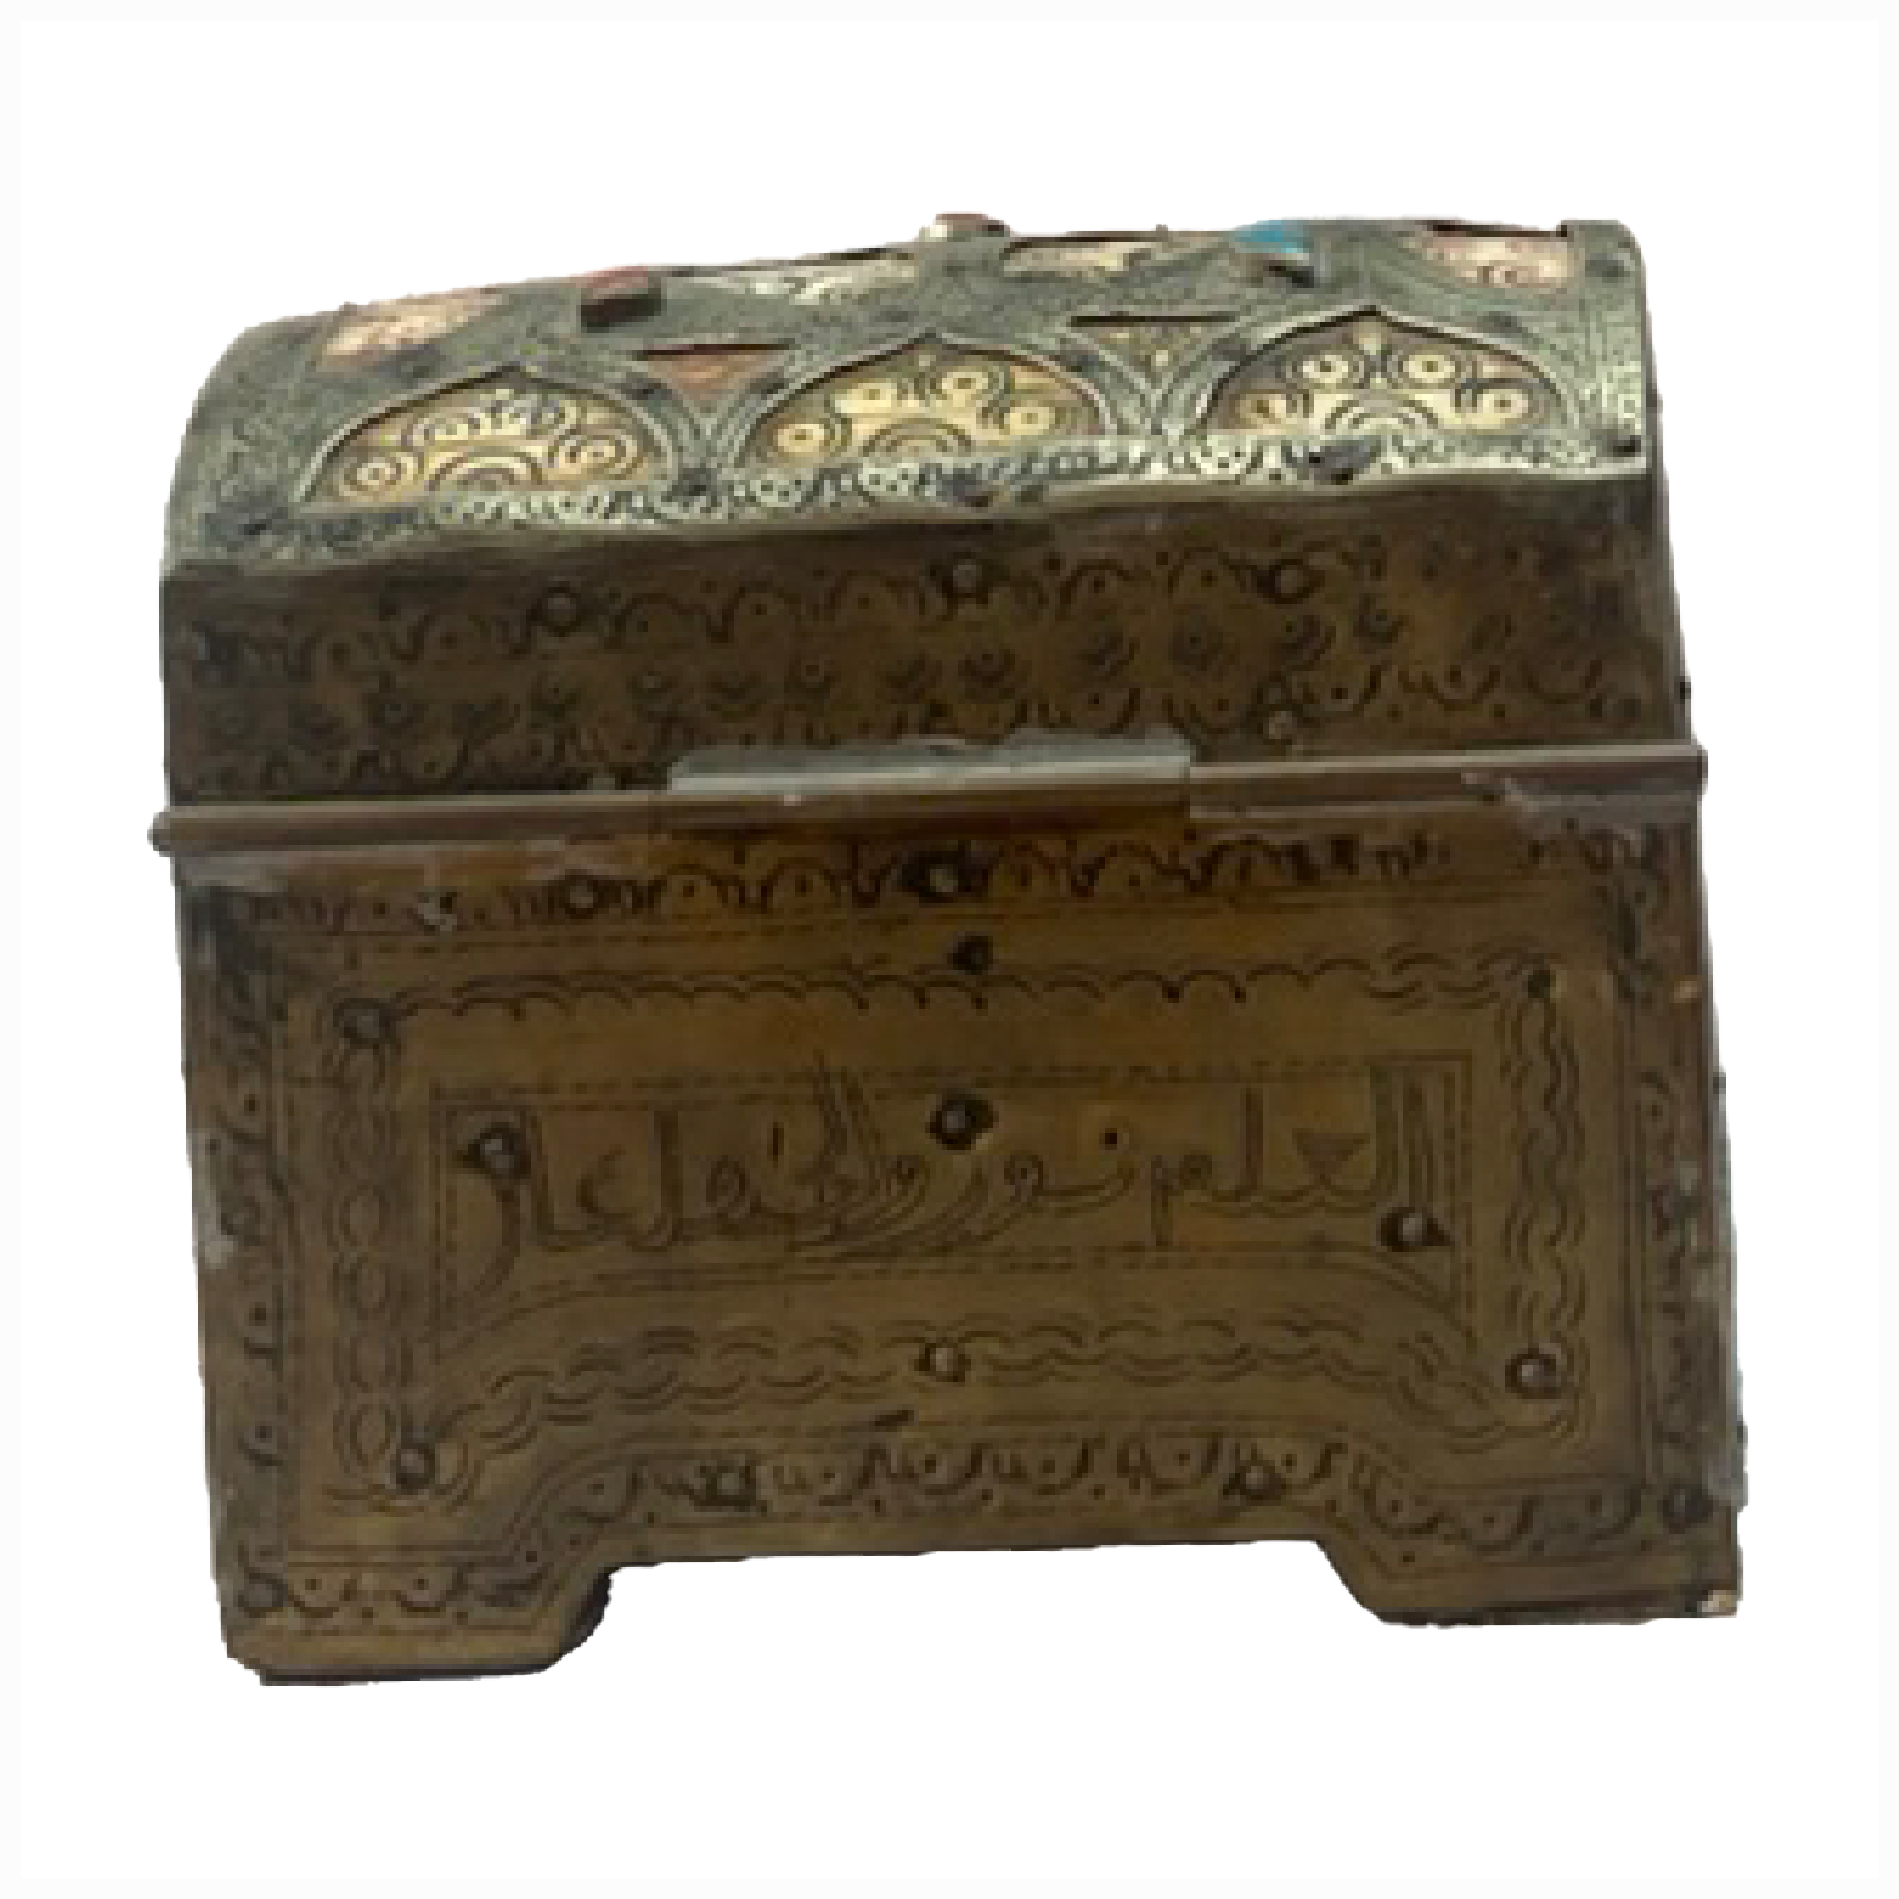 العلم نور والجهل عار